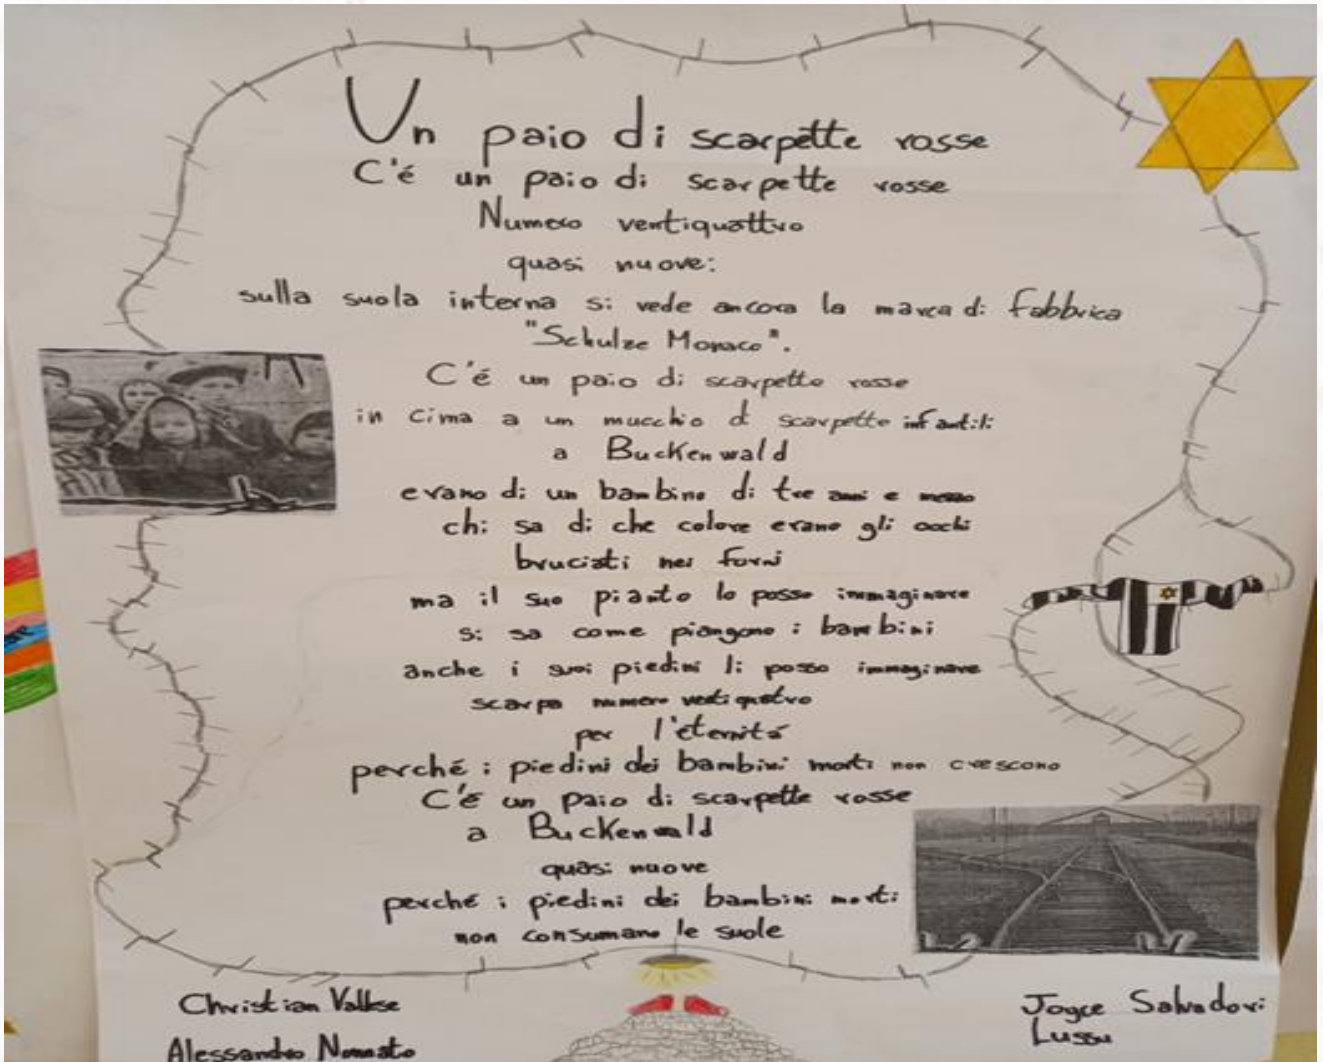 Un paio di scarpette rosse
C'é un paio di scarpette rosse
Numero ventiquattro
quasi nuove:
sulla suola interna si vede ancora la marca di fabbrica
"Schulze Monaco".
C'é un paio di scarpette rosse
in cima a un mucchio d scarpette infantili
a Buckenwald
erano di un bambino di tre anni e mezzo
chi sa di che colore erano gli occhi
bruciati nei forni
ma il suo pianto lo posso immaginare
si sa come piangono i bambini
anche i suoi piedini li posso immaginare
scarpa numero ventiquatro
per l'eternitá
perché i piedini dei bambini morti non crescono
C'é un paio di scarpette rosse
a Buckenwald
quasi nuove
perché i piedini dei bambini morti
non consumano le suole
Christian Vallese
Alessandro
Joyce Salvadori
Lussu